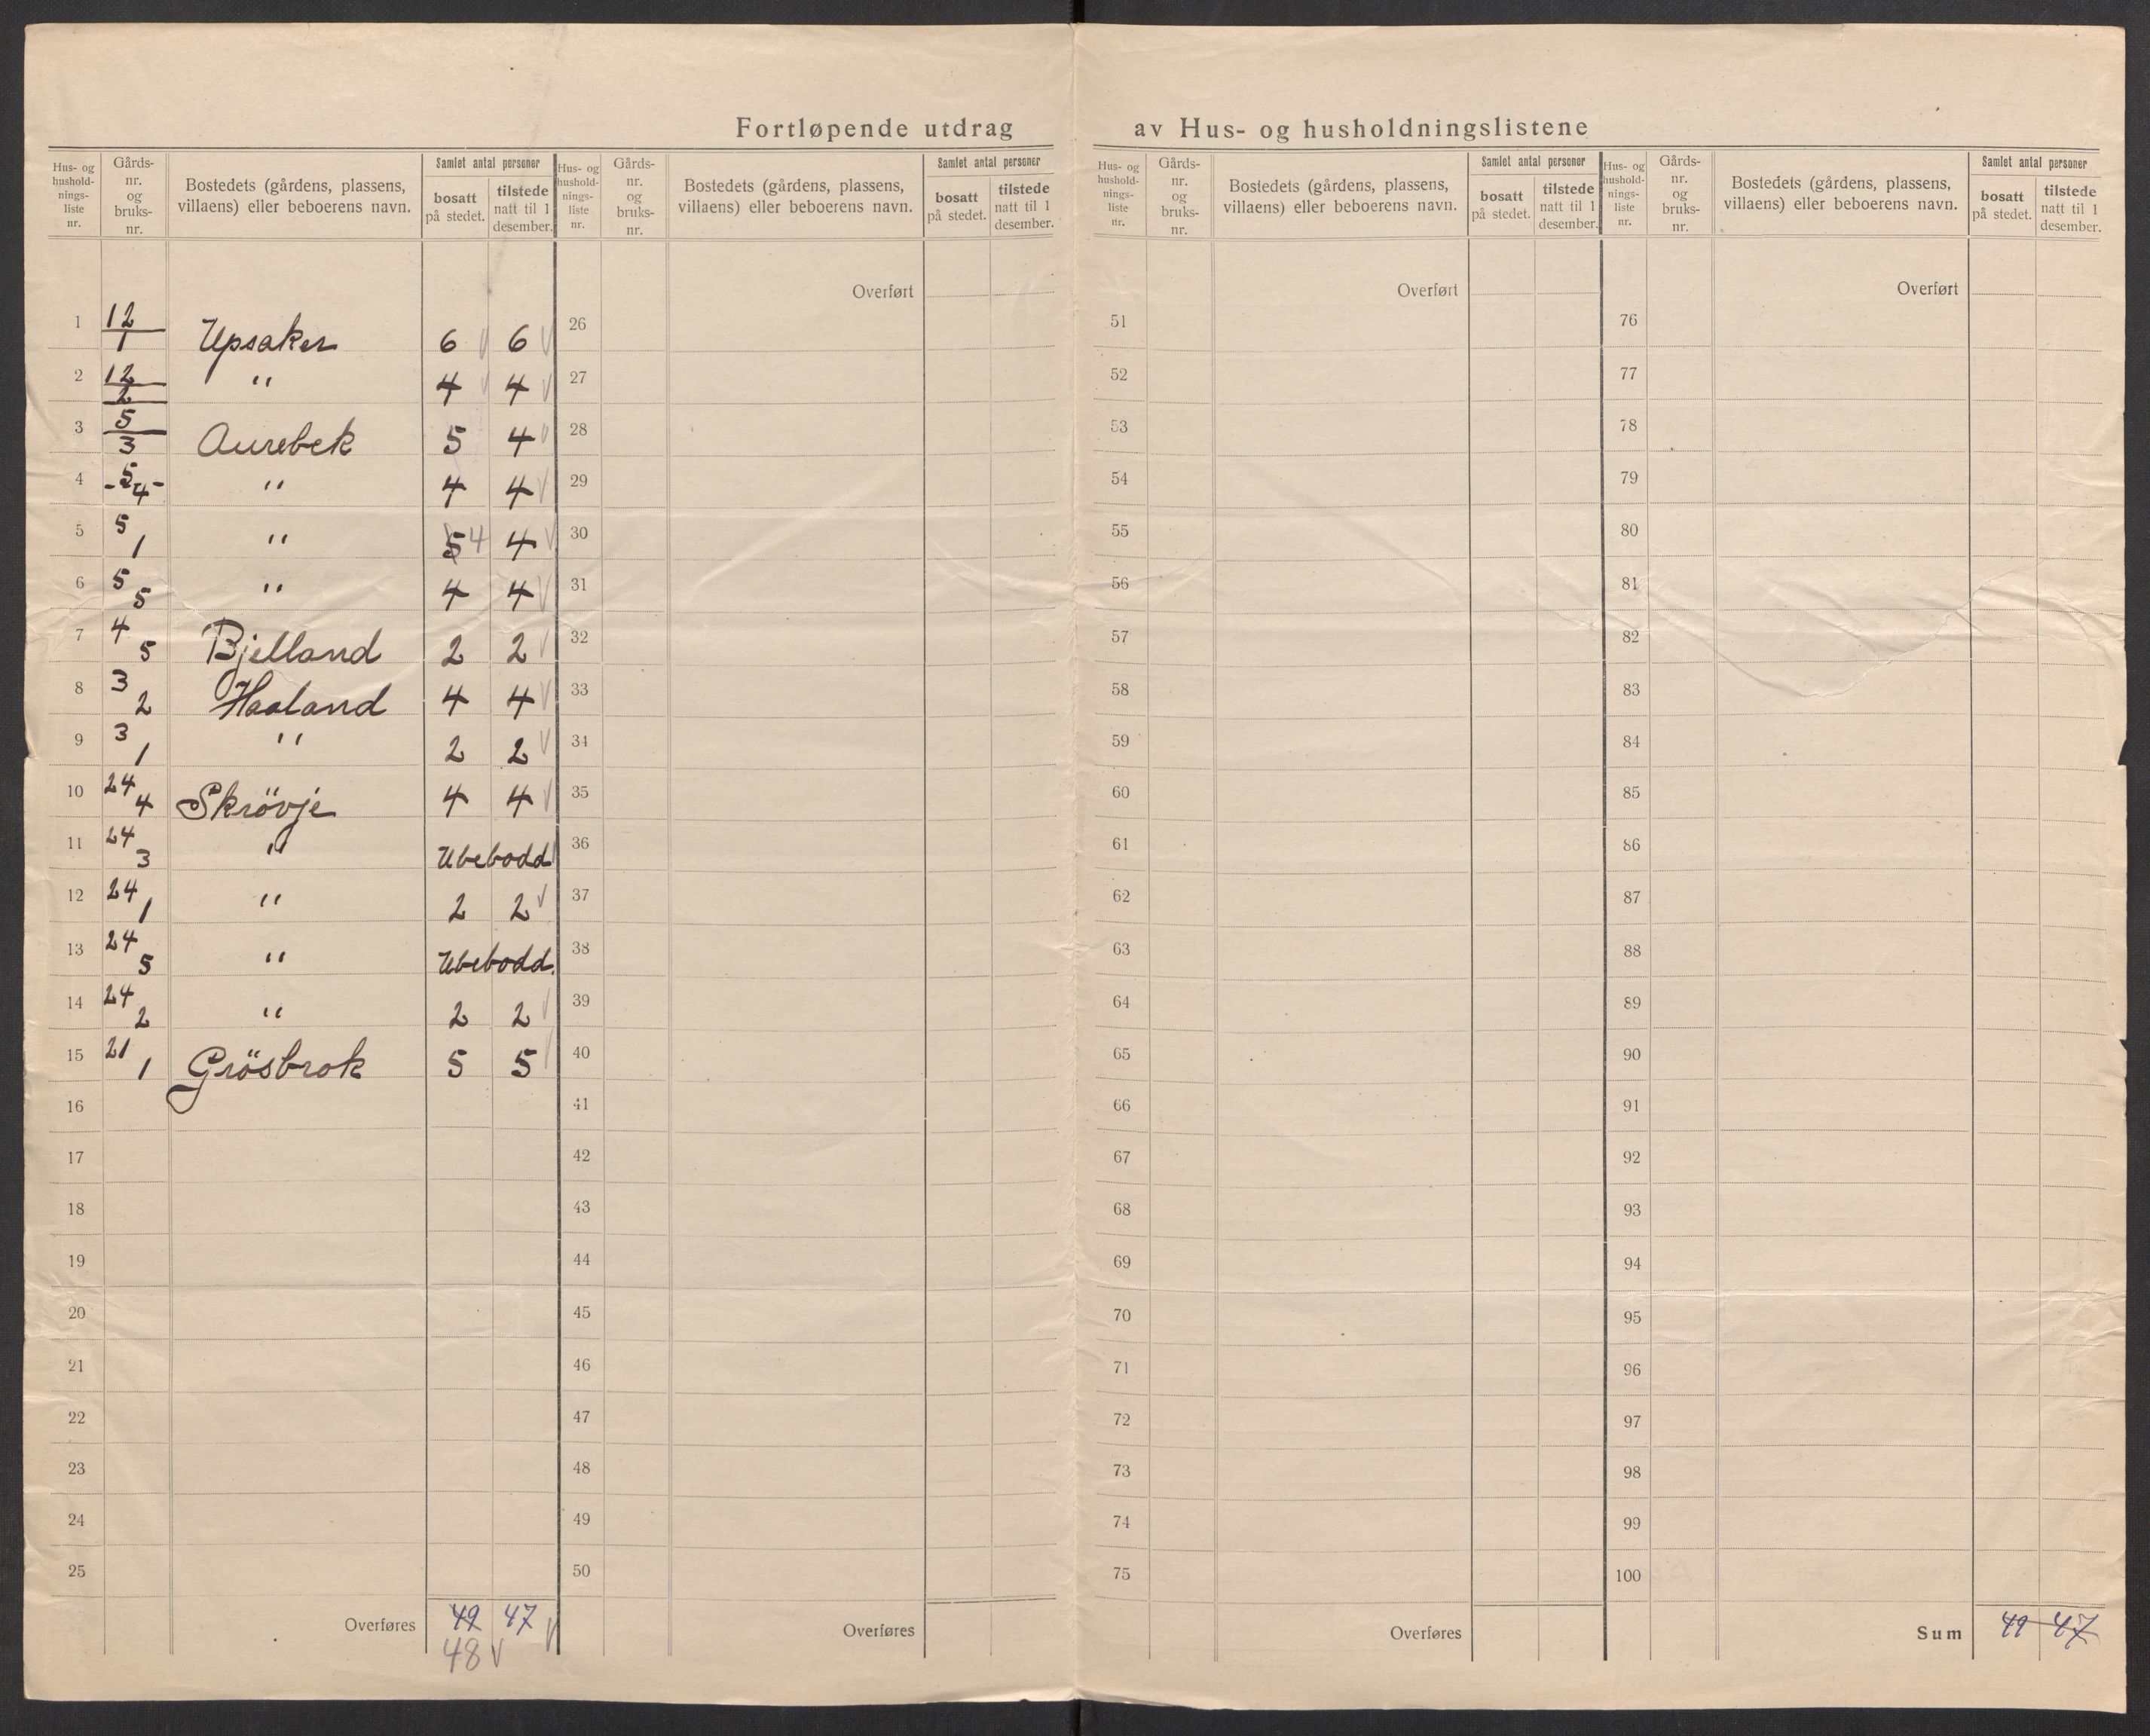 Fortløpende utdrag av Hus- og husholdningslistene
Hus- og hushold-nings-liste nr. Gårds-nr. og bruks-nr. Bostedets (gårdens, plassens, villaens) eller beboerens navn. Samlet antal personer bosatt på stedet. tilstede natt til 1 desember.
Hus- og hushold-nings-liste nr. Gårds-nr. og bruks-nr. Bostedets (gårdens, plassens, villaens) eller beboerens navn. Samlet antal personer bosatt på stedet. tilstede natt til 1 desember.
Hus- og hushold-nings-liste nr. Gårds-nr. og bruks-nr. Bostedets (gårdens, plassens, villaens) eller beboerens navn. Samlet antal personer bosatt på stedet. tilstede natt til 1 desember.
Hus- og hushold-nings-liste nr. Gårds-nr. og bruks-nr. Bostedets (gårdens, plassens, villaens) eller beboerens navn. Samlet antal personer bosatt på stedet. tilstede natt til 1 desember.
Overført Overført Overført
1 12/1 Upsaker 6 6 26 51 76
2 12/2 " 4 4 27 52 77
3 5/3 Aurebek 5 4 28 53 78
4 5/4 " 4 4 29 54 79
5 5/1 " 5 4 4 30 55 80
6 5/5 " 4 4 31 56 81
7 4/5 Bjelland 2 2 32 57 82
8 3/2 Haaland 4 4 33 58 83
9 3/1 " 2 2 34 59 84
10 24/4 Skrövje 4 4 35 60 85
11 24/3 " Ubebodd 36 61 86
12 24/1 " 2 2 37 62 87
13 24/5 " Ubebodd. 38 63 88
14 24/2 " 2 2 39 64 89
15 21/1 Grösbrok 5 5 40 65 90
16 41 66 91
17 42 67 92
18 43 68 93
19 44 69 94
20 45 70 95
21 46 71 96
22 47 72 97
23 48 73 98
24 49 74 99
25 50 75 100
Overføres 49 47 Overføres Overføres Sum 49 47
48